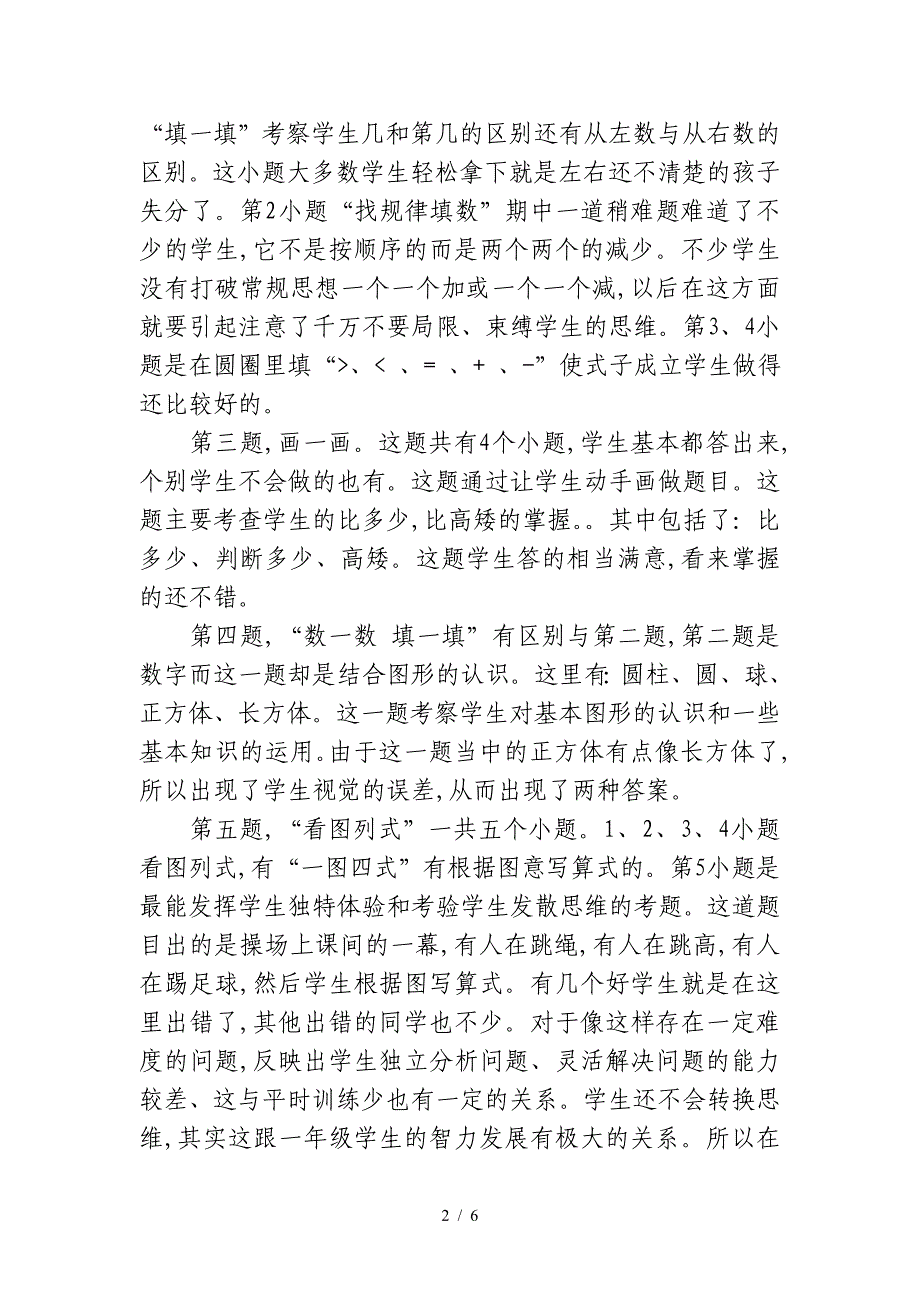 “填一填”考察学生几和第几的区别还有从左数与从右数的
区别。这小题大多数学生轻松拿下就是左右还不清楚的孩子
失分了。第2小题“找规律填数”期中一道稍难题难道了不
少的学生,它不是按顺序的而是两个两个的减少。不少学生
没有打破常规思想一个一个加或一个一个减,以后在这方面
就要引起注意了千万不要局限、束缚学生的思维。第3、4小
题是在圆圈里填“>、< 、= 、+ 、-”使式子成立学生做得
还比较好的。
第三题,画一画。这题共有4个小题,学生基本都答出来,
个别学生不会做的也有。这题通过让学生动手画做题目。这
题主要考查学生的比多少,比高矮的掌握。。其中包括了:比
多少、判断多少、高矮。这题学生答的相当满意,看来掌握
的还不错。
第四题,“数一数 填一填”有区别与第二题,第二题是
数字而这一题却是结合图形的认识。这里有:圆柱、圆、球、
正方体、长方体。这一题考察学生对基本图形的认识和一些
基本知识的运用。由于这一题当中的正方体有点像长方体了,
所以出现了学生视觉的误差,从而出现了两种答案。
第五题,“看图列式”一共五个小题。1、2、3、4小题
看图列式,有“一图四式”有根据图意写算式的。第5小题是
最能发挥学生独特体验和考验学生发散思维的考题。这道题
目出的是操场上课间的一幕,有人在跳绳,有人在跳高,有人
在踢足球,然后学生根据图写算式。有几个好学生就是在这
里出错了,其他出错的同学也不少。对于像这样存在一定难
度的问题,反映出学生独立分析问题、灵活解决问题的能力
较差、这与平时训练少也有一定的关系。学生还不会转换思
维,其实这跟一年级学生的智力发展有极大的关系。所以在
2 / 6